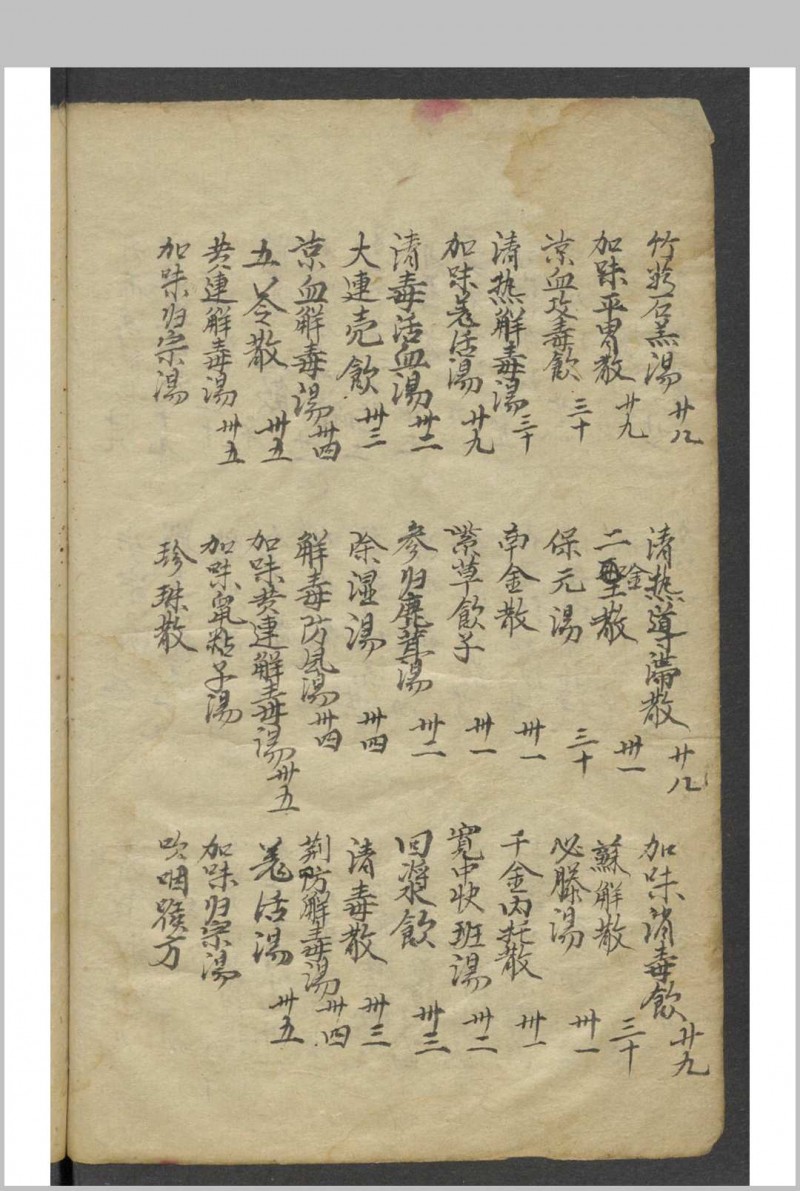 竹葉石羔湯 廿八 清热導滞散 廿八 加味消毒飲 廿九
加味平胃散 廿九 二聖金散 卅一 蘇解散 三十
凉血攻毒飲 三十 保元湯 三十 必滕湯 卅一
清热解毒湯 三十 南金散 卅一 千金内托散 卅一
加味羌活湯 廿九 紫草飲子 卅一 寬中快班湯 卅二
清毒活血湯 卅二 参归鹿茸湯 卅二 回漿飲 卅三
大連壳飲 卅三 除湿湯 卅四 清毒散 卅三
凉血解毒湯 卅四 解毒防風湯 卅四 荆防解毒湯 卅四
五苓散 卅五 加味黄連解毒湯 卅五 羌活湯 卅五
黄連解毒湯 卅五 加味鼠粘子湯 加味归宗湯
加味归宗湯 珍珠散 吹咽喉方